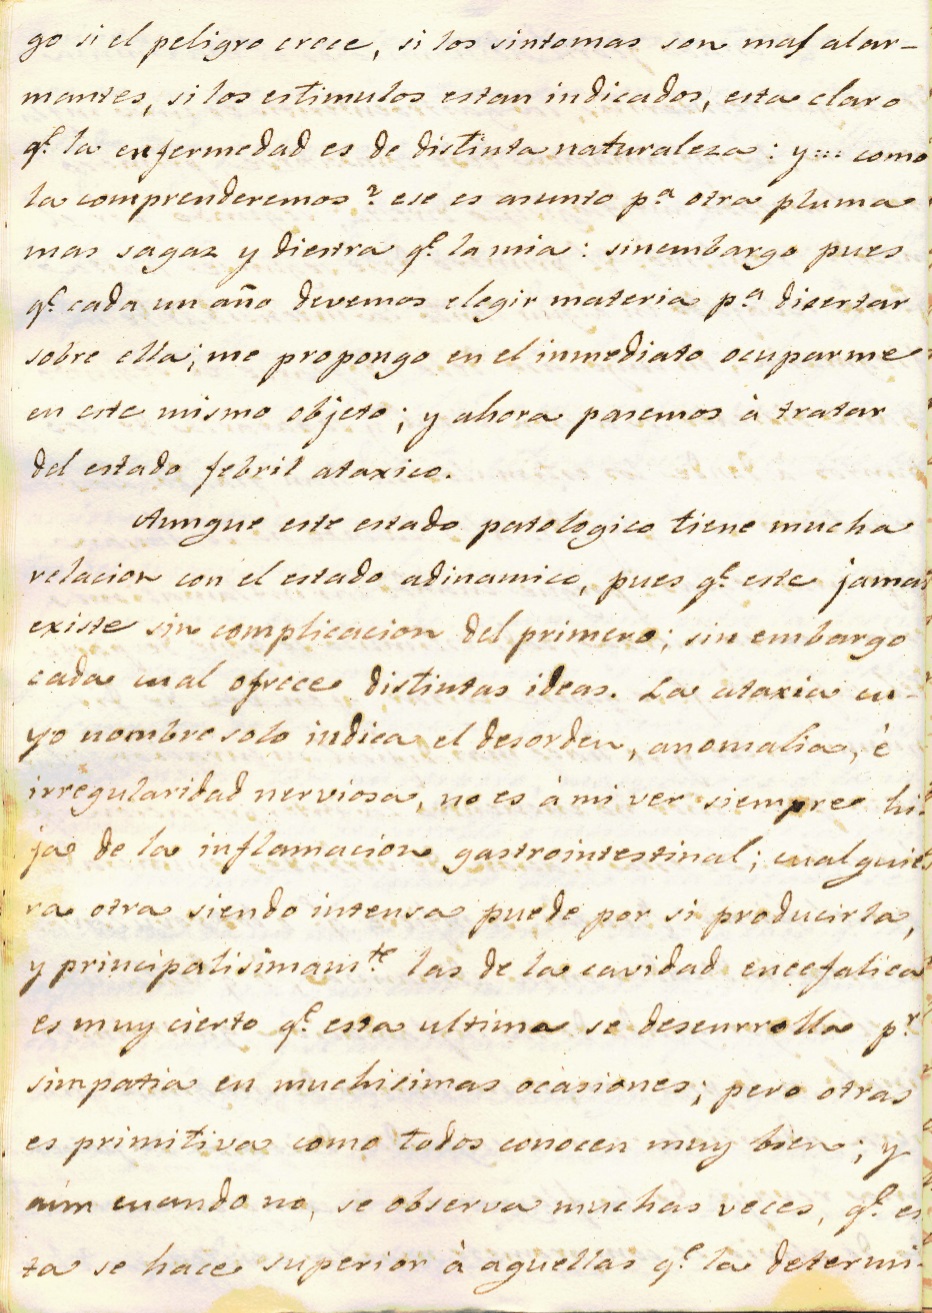 go si el peligro crece, si los sintomas son mas alar-
mantes, si los estimulos estan indicados, esta claro
qᵉ la enfermedad es de distinta naturaleza: y... como
la comprenderemos? ese es asunto pᵃ otra pluma
mas sagaz y diestra qᵉ la mia: sinembargo pues
qᵉ cada un año devemos elegir materia pᵃ disertar
sobre ella; me propongo en el inmediato ocuparme
en este mismo objeto; y ahora pasemos à tratar
del estado febril ataxico.
Aunque este estado patologico tiene mucha
relacion con el estado adinamico, pues qᵉ este jamas
existe sin complicacion del primero; sin embargo
cada cual ofrece distintas ideas. La ataxia cu-
yo nombre solo indica el desorden, anomalia, è
irregularidad nerviosa, no es à mi ver siempre hi-
ja de la inflamacion gastrointestinal; cualquie-
ra otra siendo intensa puede por si producirla,
y principalisimamᵗᵉ las de la cavidad encefalica
es muy cierto qᵉ esta ultima se desenrrolla pʳ
simpatia en muchisimas ocasiones; pero otras
es primitiva como todos conocen muy bien; y
aún cuando no, se observa muchas veces, qᵉ es
ta se hace superior à aquellas qᵉ la determi-